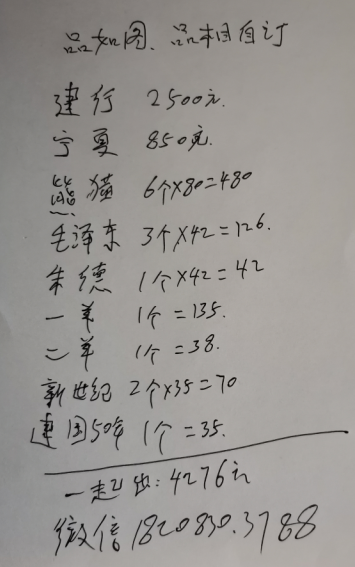 品如图、品相自订
建行 2500元.
宁夏 850元.
熊猫 6个×80=480
毛泽东 3个×42=126.
朱德 1个×42=42
一羊 1个=135.
二羊 1个=38.
新世纪 2个×35=70
建国50年 1个=35.
一起出:4276元
微信1820830.3788